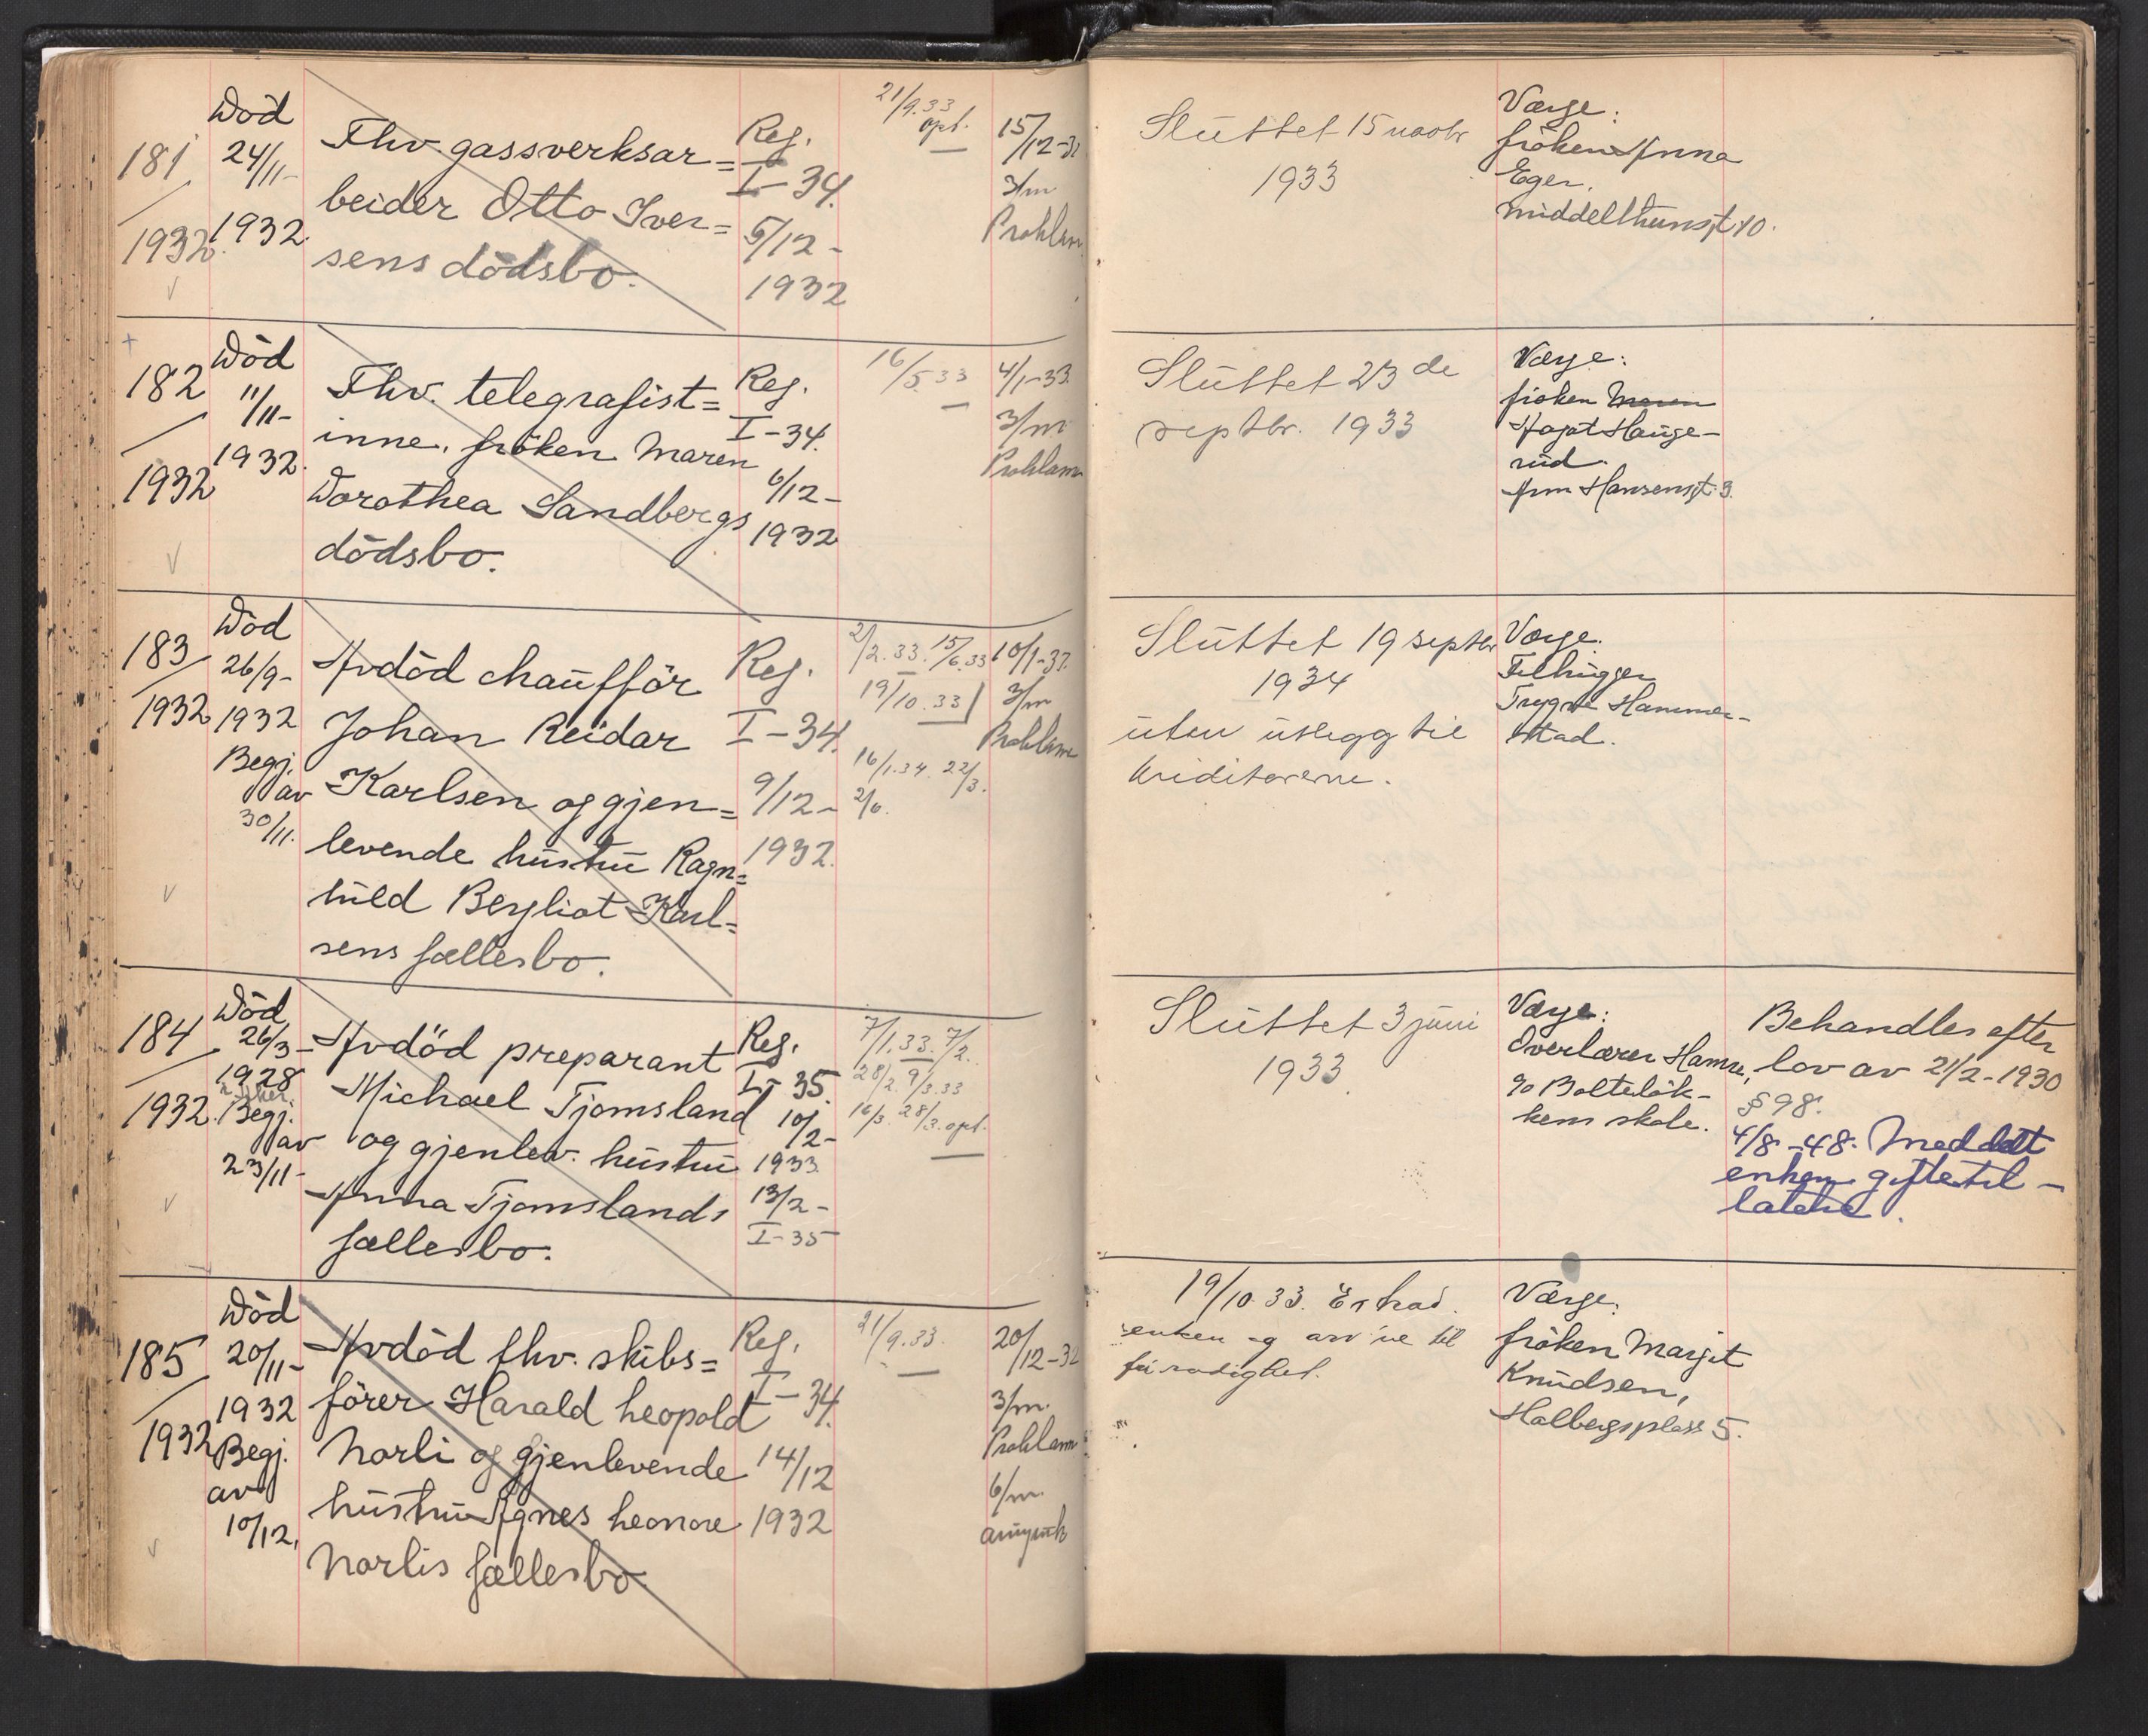 181
1932.
Död
24/11-
1932.
Fhv. gassverksar=
beider Otto Iver=
sens dödsbo.
Reg.
I-34.
5/12-
1932
21/9.33
opt.
15/12-32
3/m
Proklam
Sluttet 15 novbr
1933
Værge:
fröken Anna
Eger.
Middelthunsgt 10.
182
1932
Död
11/11-
1932.
Fhv. telegrafist=
inne, fröken Maren
Dorothea Sandbergs
dödsbo.
Reg.
I-34.
6/12-
1932
16/5.33
4/1-33.
3/m
Proklam
Sluttet 23de
septbr. 1933
Værge:
fröken Maren
Aagot Hauge-
rud.
183
1932
Död
26/9-
1932
Begj.
av
30/11.
Avdöd chaufför
Johan Reidar
Karlsen og gjen=
levende hustru Ragn=
hild Bergliot Karl=
sens fællesbo.
Reg.
I-34.
9/12-
1932.
2/2.33. 15/6.33
19/10.33
16/1.34. 22/3.
2/6.
10/1-33.
3/m
Proklam
Sluttet 19 septbr
1934
uten utlegg til
kreditorerne.
Værge.
Filhugger
Trygve Hammer-
stad.
184
1932.
Död
26/3-
1928
Begj.
av
23/11-
Avdöd preparant
Michael Tjomsland
og gjenlev. hustru
Anna Tjomslands
fællesbo.
Reg.
I-35.
10/2-
1933
13/2-
I-35
7/1.33. 7/2.
28/2. 9/3.33
16/3. 28/3. opt.
Sluttet 3 juni
1933.
Værge:
Overlærer Hamre,
c/o Bolteløk-
kens skole.
Behandles efter
lov av 21/2-1930
§ 98.
4/8-48. Meddelt
enken giftetil-
latelse.
185
1932
Död
20/11-
1932
Begj.
av
10/12.
Avdöd fhv. skibs=
förer Harald Leopold
Norli og gjenlevende
hustru Agnes Leonore
Norlis fællesbo.
Reg.
I-34.
14/12
1932
21/9.33.
20/12-32
3/m.
Proklam
6/m.
19/10.33.
enken og arv'ne til
fri rådighet.
Værge:
fröken Margit
Knudsen,
Holbergsplass 5.